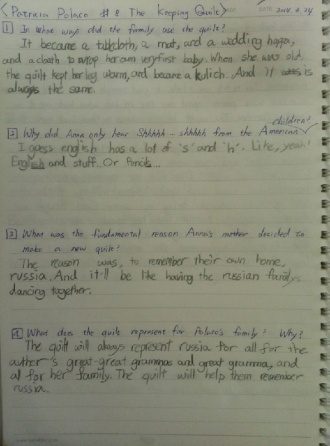 < Patricia Polaco #8 The Keeping Quilt > DATE 2018. 8. 24
1 In what ways did the family use the quilt?
It became a tablecloth, a mat, and a wedding huppa,
and a cloth to wrap her own very first baby. When she was old
the quilt kept her leg warm, and became a kulich. And it is
always the same.
children?
2 Why did Anna only hear Shhhhh - shhhhh from the American
I guess english has a lot of 's' and 'h'. Like, yeah!
English and stuff. Or pencils...
3 What was the fundamental reason Anna's mother decided to
make a new quilt?
The reason was, to remember their own home,
russia. And it'll be like having the russian family
dancing together.
4 What does the quilt represent for Polaco's family? Why?
The quilt will always represent russia for all for the
author's great-great grammas and great gramma, and
all for her family. The quilt will help them remember
russia.